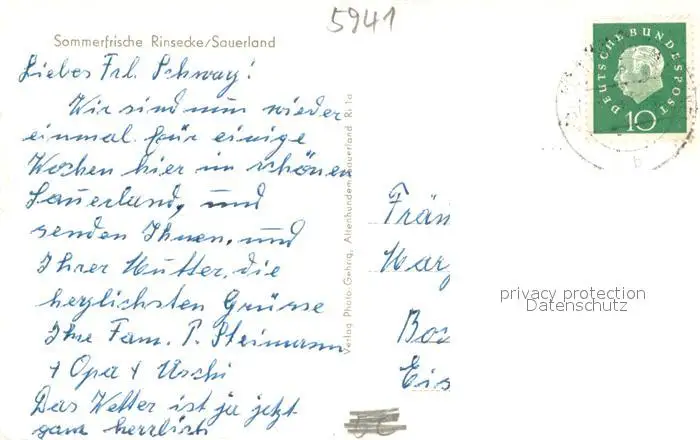 5941
Sommerfrische Rinsecke/Sauerland
Liebes Frl. Schwarz!
Wir sind nun wieder
einmal für einige
Wochen hier im schönen
Sauerland, und
senden Ihnen, und
Ihrer Mutter, die
herzlichsten Grüsse
Ihre Fam. P. Steimann
+ Opa + Uschi
Das Wetter ist ja jetzt
ganz herrlich
Verlag Photo-Gehrig, Altenhundem-Sauerland Ri 1a
DEUTSCHE BUNDESPOST
10
b
Frän
Marg
Boc
Eis
privacy protection
Datenschutz